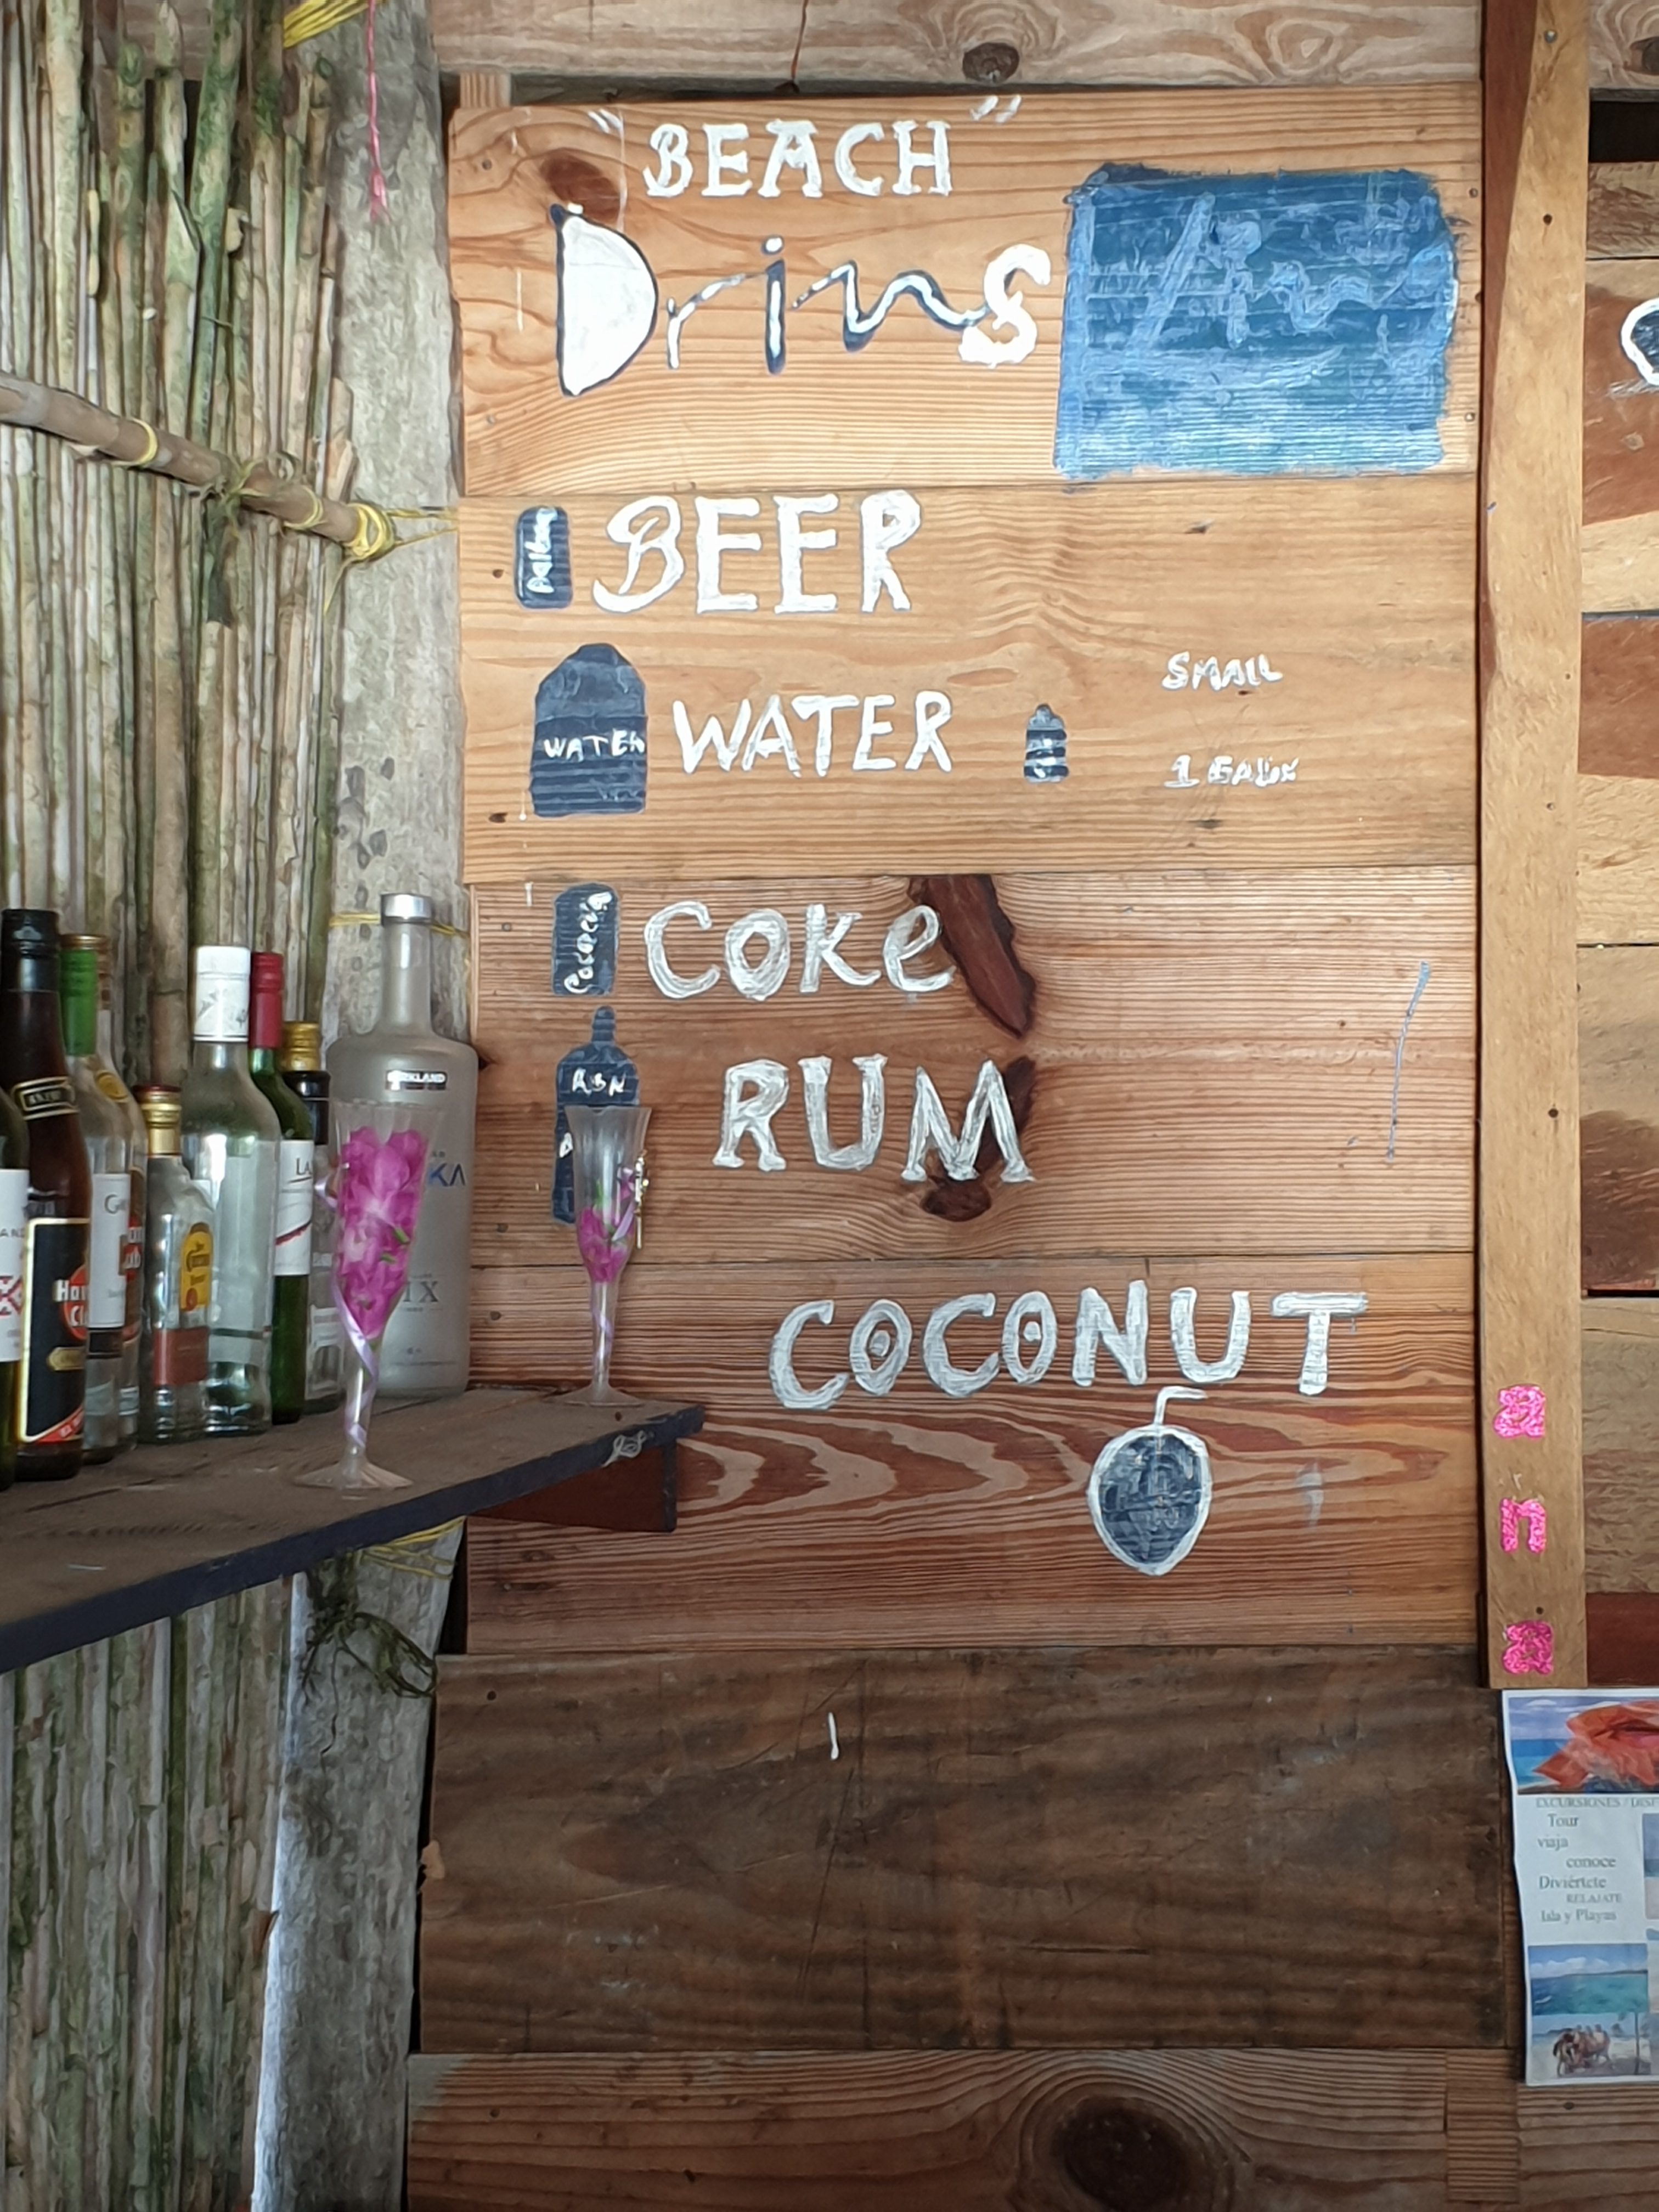 "BEACH"
Drins
BEER
WATER
WATER
SMALL
1 GALON
Coke
RUM
COCONUT
KIRKLAND
a
n
a
EXCURSIONES /
Tour
viaja
conoce
Diviértete
RELAJATE
Isla y Playas